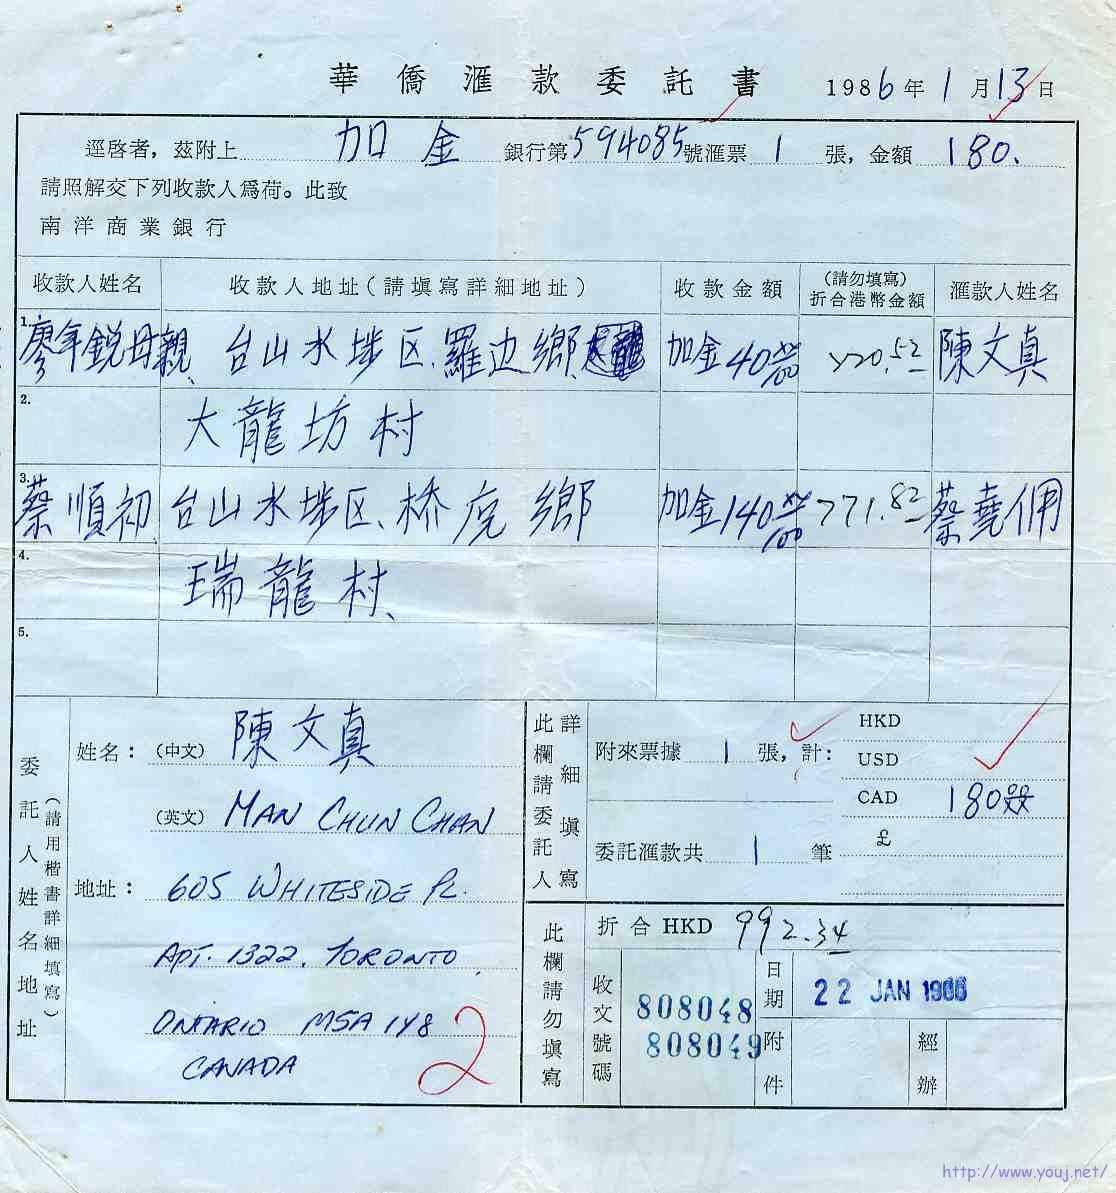 華僑滙款委託書 1986年1月13日
逕啓者，茲附上 加金 銀行第594085號滙票 1 張，金額 180.
請照解交下列收款人爲荷。此致
南洋商業銀行
收款人姓名 收款人地址（請填寫詳細地址） 收款金額 （請勿填寫）折合港幣金額 滙款人姓名
1. 廖年鋭母親、 台山水埗区、羅边鄉、 加金40 00/100 220.52 陳文真
2. 大龍坊村
3. 蔡順初 台山水埗区、桥庇鄉 加金140 00/100 771.82 蔡堯佣
4. 瑞龍村、
5.
委託人姓名地址
（請用楷書詳細填寫）
姓名：（中文） 陳文真
（英文） MAN CHUN CHAN
地址： 605 WHITESIDE PL.
APT. 1322, TORONTO,
ONTARIO M5A 1Y8
CANADA
2
此欄請委託人
詳細填寫
附來票據 1 張，計：
HKD
USD
CAD 180 00/XX
£
委託滙款共 1 筆
此欄請勿填寫
折合HKD 992.34
收文號碼 808048
808049
日期 22 JAN 1986
附件
經辦
http://www.youj.net/